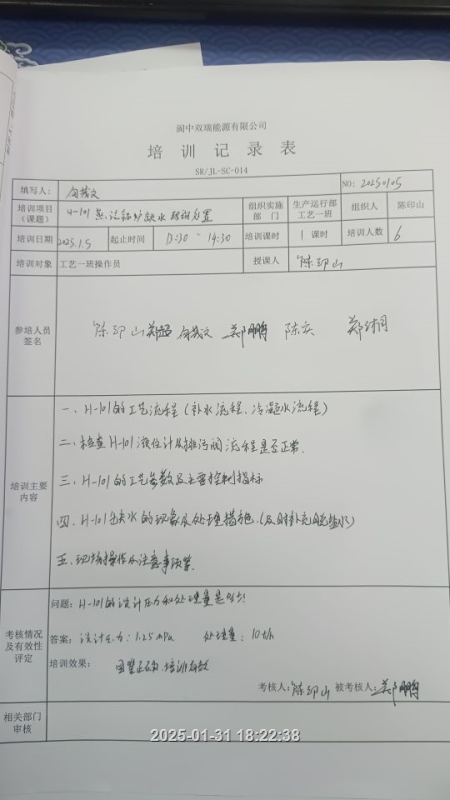 阆中双瑞能源有限公司
培训记录表
SR/JL-SC-014
填写人： NO: 20250105
培训项目（课题） H-101蒸汽锅炉缺水 组织实施部门 生产运行部工艺一班 组织人 陈印山
培训日期 2025.1.5 起止时间 13:30~14:30 培训课时 1课时 培训人数 6
培训对象 工艺一班操作员 授课人 陈印山
参培人员签名 陈印山 郑鹏 陈庆
培训主要内容
一、H-101的工艺流程（补水流程、冷凝水流程）
二、检查H-101液位计及排污阀流程是否正常.
三、H-101的工艺参数及主要控制指标
四、H-101缺水的现象及处理措施（及时补充脱盐水）
五、现场操作及注意事项
考核情况及有效性评定
问题：H-101的设计压力和处理量是多少？
答案：设计压力：1.25mPa 处理量：10t/h
培训效果：回答正确，培训有效
考核人：陈印山 被考核人：郑鹏
相关部门审核
2025-01-31 18:22:38